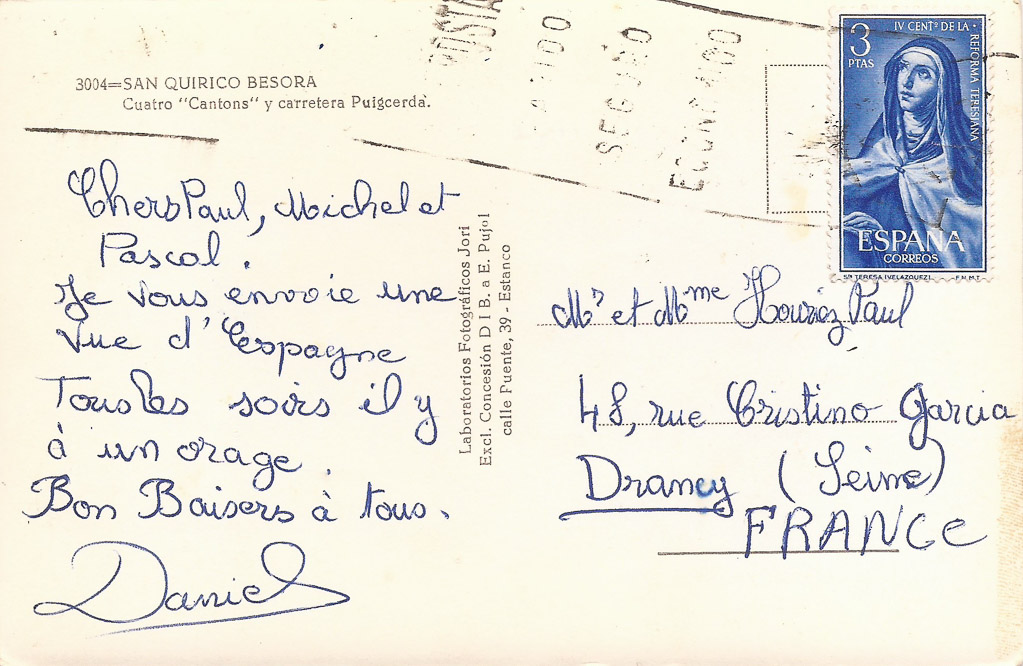 3004=SAN QUIRICO BESORA
Cuatro "Cantons" y carretera Puigcerdá.
Chers Paul, Michel et
Pascal.
Je vous envoie une
vue d'Espagne
Tous les soirs il y
à un orage.
Bon Baisers à tous.
Daniel
Laboratorios Fotográficos Jori
Excl. Concesión D I B. a E. Pujol
calle Puente, 39 - Estanco
SEGURO
3 PTAS
IV CENTº DE LA · REFORMA TERESIANA
ESPAÑA
CORREOS
STA TERESA (VELAZQUEZ) F.N.M.T.
Mr et Mme Paul
48, rue Cristino Garcia
Drancy (Seine)
FRANCE